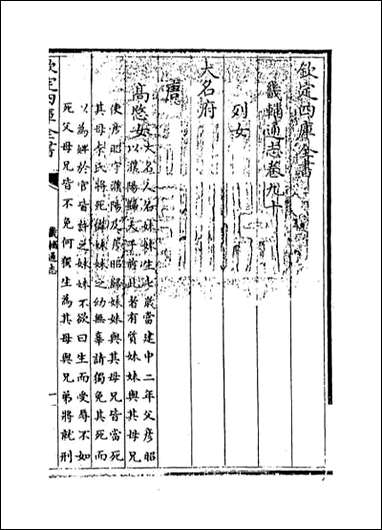 欽定四庫全書
畿輔通志卷九十
列女
大名府
唐
高愍女
大名人名妹妹生七歲當建中二年父彥昭
以濮陽歸天子前此者有質妹妹與其母兄
使彥昭守濮陽及彥昭歸妹妹與其母兄皆當死
其母李氏將死憐妹妹之幼無辜請獨免其死而
以為婢於官皆許之妹妹不欲曰生而受辱不如
死父母兄皆不免何獨生為其母與兄弟將就刑
欽定四庫全書
畿輔通志
一